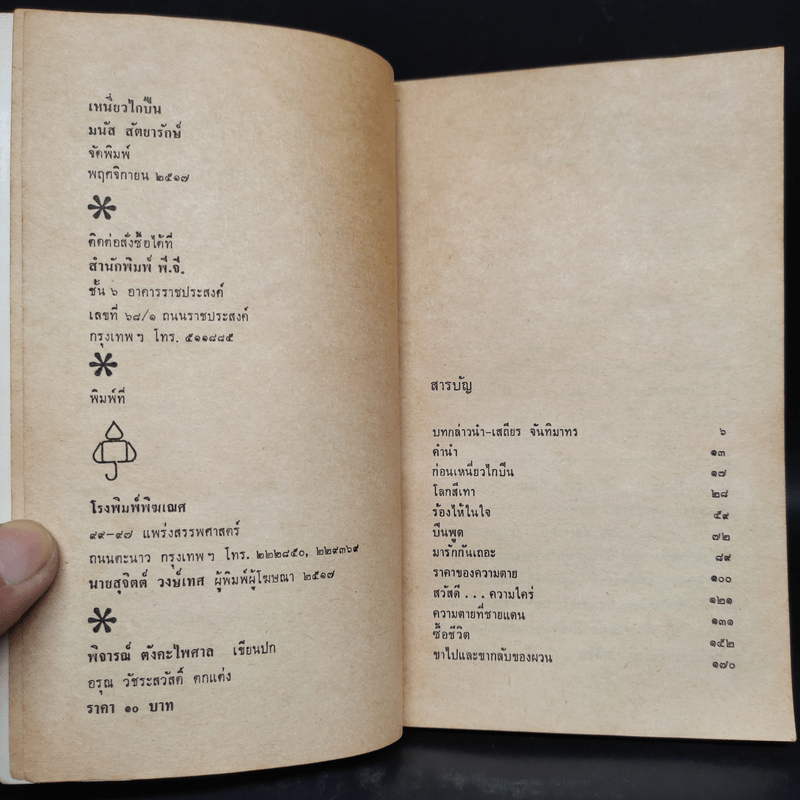 เหนี่ยวไกปืน
มนัส สัตยารักษ์
จัดพิมพ์
พฤศจิกายน ๒๕๑๗
ติดต่อสั่งซื้อได้ที่
สำนักพิมพ์ พี.จี.
ชั้น ๖ อาคารราชประสงค์
เลขที่ ๖๘/๑ ถนนราชประสงค์
กรุงเทพฯ โทร. ๕๑๑๘๘๕
พิมพ์ที่
โรงพิมพ์พิฆเณศ
๙๙-๙๗ แพร่งสรรพศาสตร์
ถนนตะนาว กรุงเทพฯ โทร. ๒๒๒๘๕๐, ๒๒๙๓๖๙
นายสุจิตต์ วงษ์เทศ ผู้พิมพ์ผู้โฆษณา ๒๕๑๗
พิจารณ์ ตังคะไพศาล เขียนปก
อรุณ วัชระสวัสดิ์ ตกแต่ง
ราคา ๑๐ บาท
สารบัญ
บทกล่าวนำ-เสถียร จันทิมาทร ๖
คำนำ ๑๓
ก่อนเหนี่ยวไกปืน ๑๗
โลกสีเทา ๒๘
ร้องไห้ในใจ ๕๙
ปืนพูด ๗๒
มารักกันเถอะ ๘๙
ราคาของความตาย ๑๐๐
สวัสดี...ความใคร่ ๑๒๑
ความตายที่ชายแดน ๑๓๑
ซื้อชีวิต ๑๕๒
ขาไปและขากลับของผวน ๑๗๐